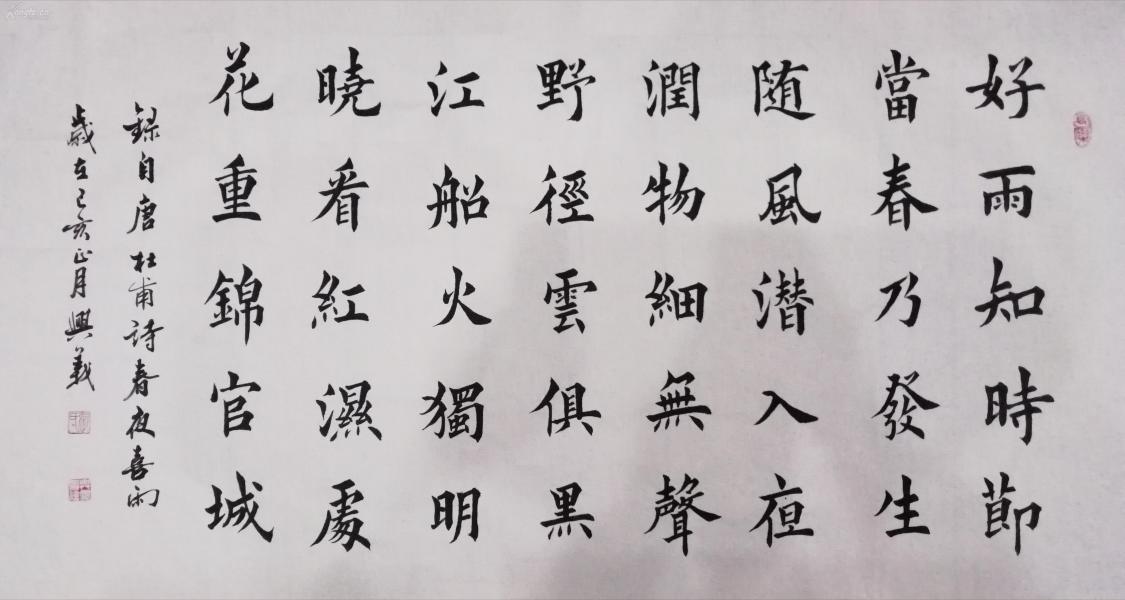 好雨知時節
當春乃發生
随風潜入夜
潤物細無聲
野徑雲俱黑
江船火獨明
曉看紅濕處
花重錦官城
錄自唐杜甫詩春夜喜雨
歲在己亥正月興義